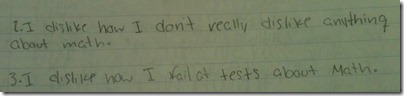 2.I dislike how I don't really dislike anything
about math.
3.I dislike how I fail at tests about Math.